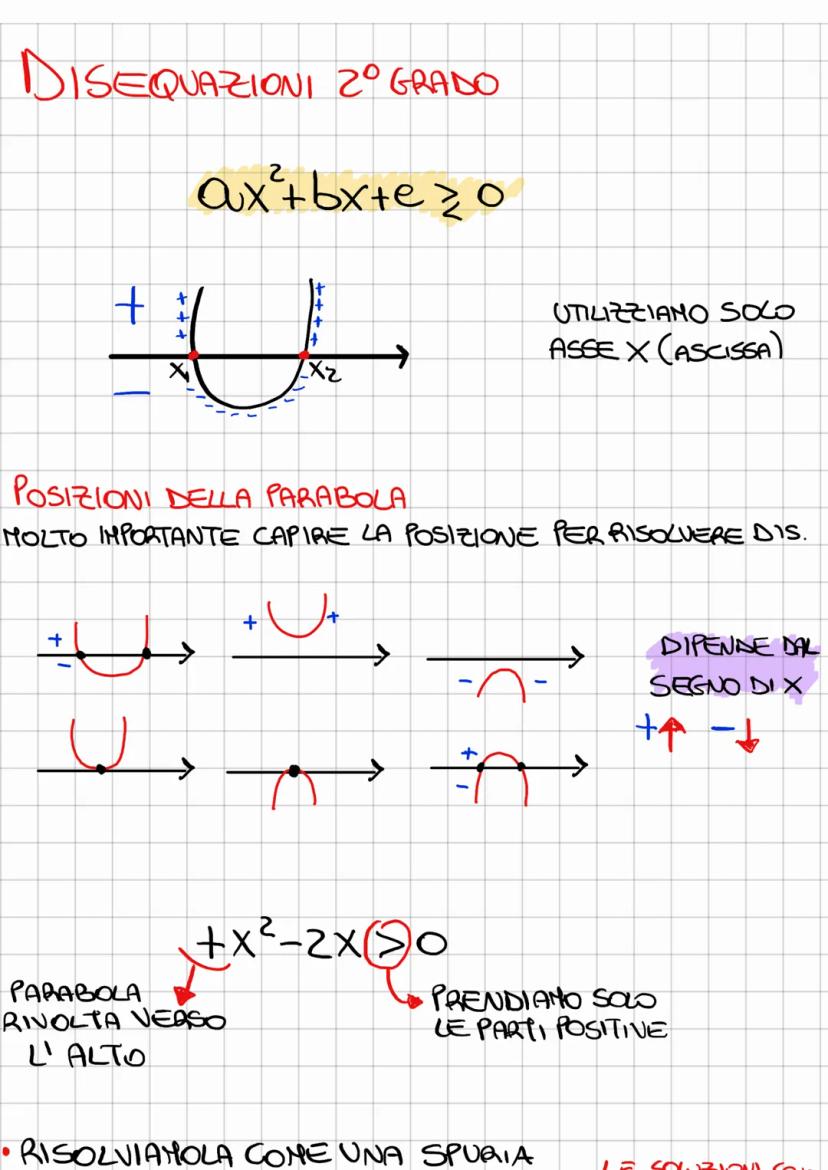 DISEQUAZIONI 2° GRADO
ax²+bx+e ⋛ 0
+
+ + +
+ + + +
UTILIZZIAMO SOLO
ASSE X (ASCISSA)
x₁
x₂
−
- - - - - - - - - -
POSIZIONI DELLA PARABOLA
MOLTO IMPORTANTE CAPIRE LA POSIZIONE PER RISOLVERE DIS.
+ −
+ +
− −
DIPENDE DAL
SEGNO DI X
+ ↑ − ↓
+ −
+x²-2x>0
PARABOLA
RIVOLTA VERSO
L'ALTO
PRENDIAMO SOLO
LE PARTI POSITIVE
• RISOLVIAMOLA COME UNA SPURIA
LE SOLUZIONI